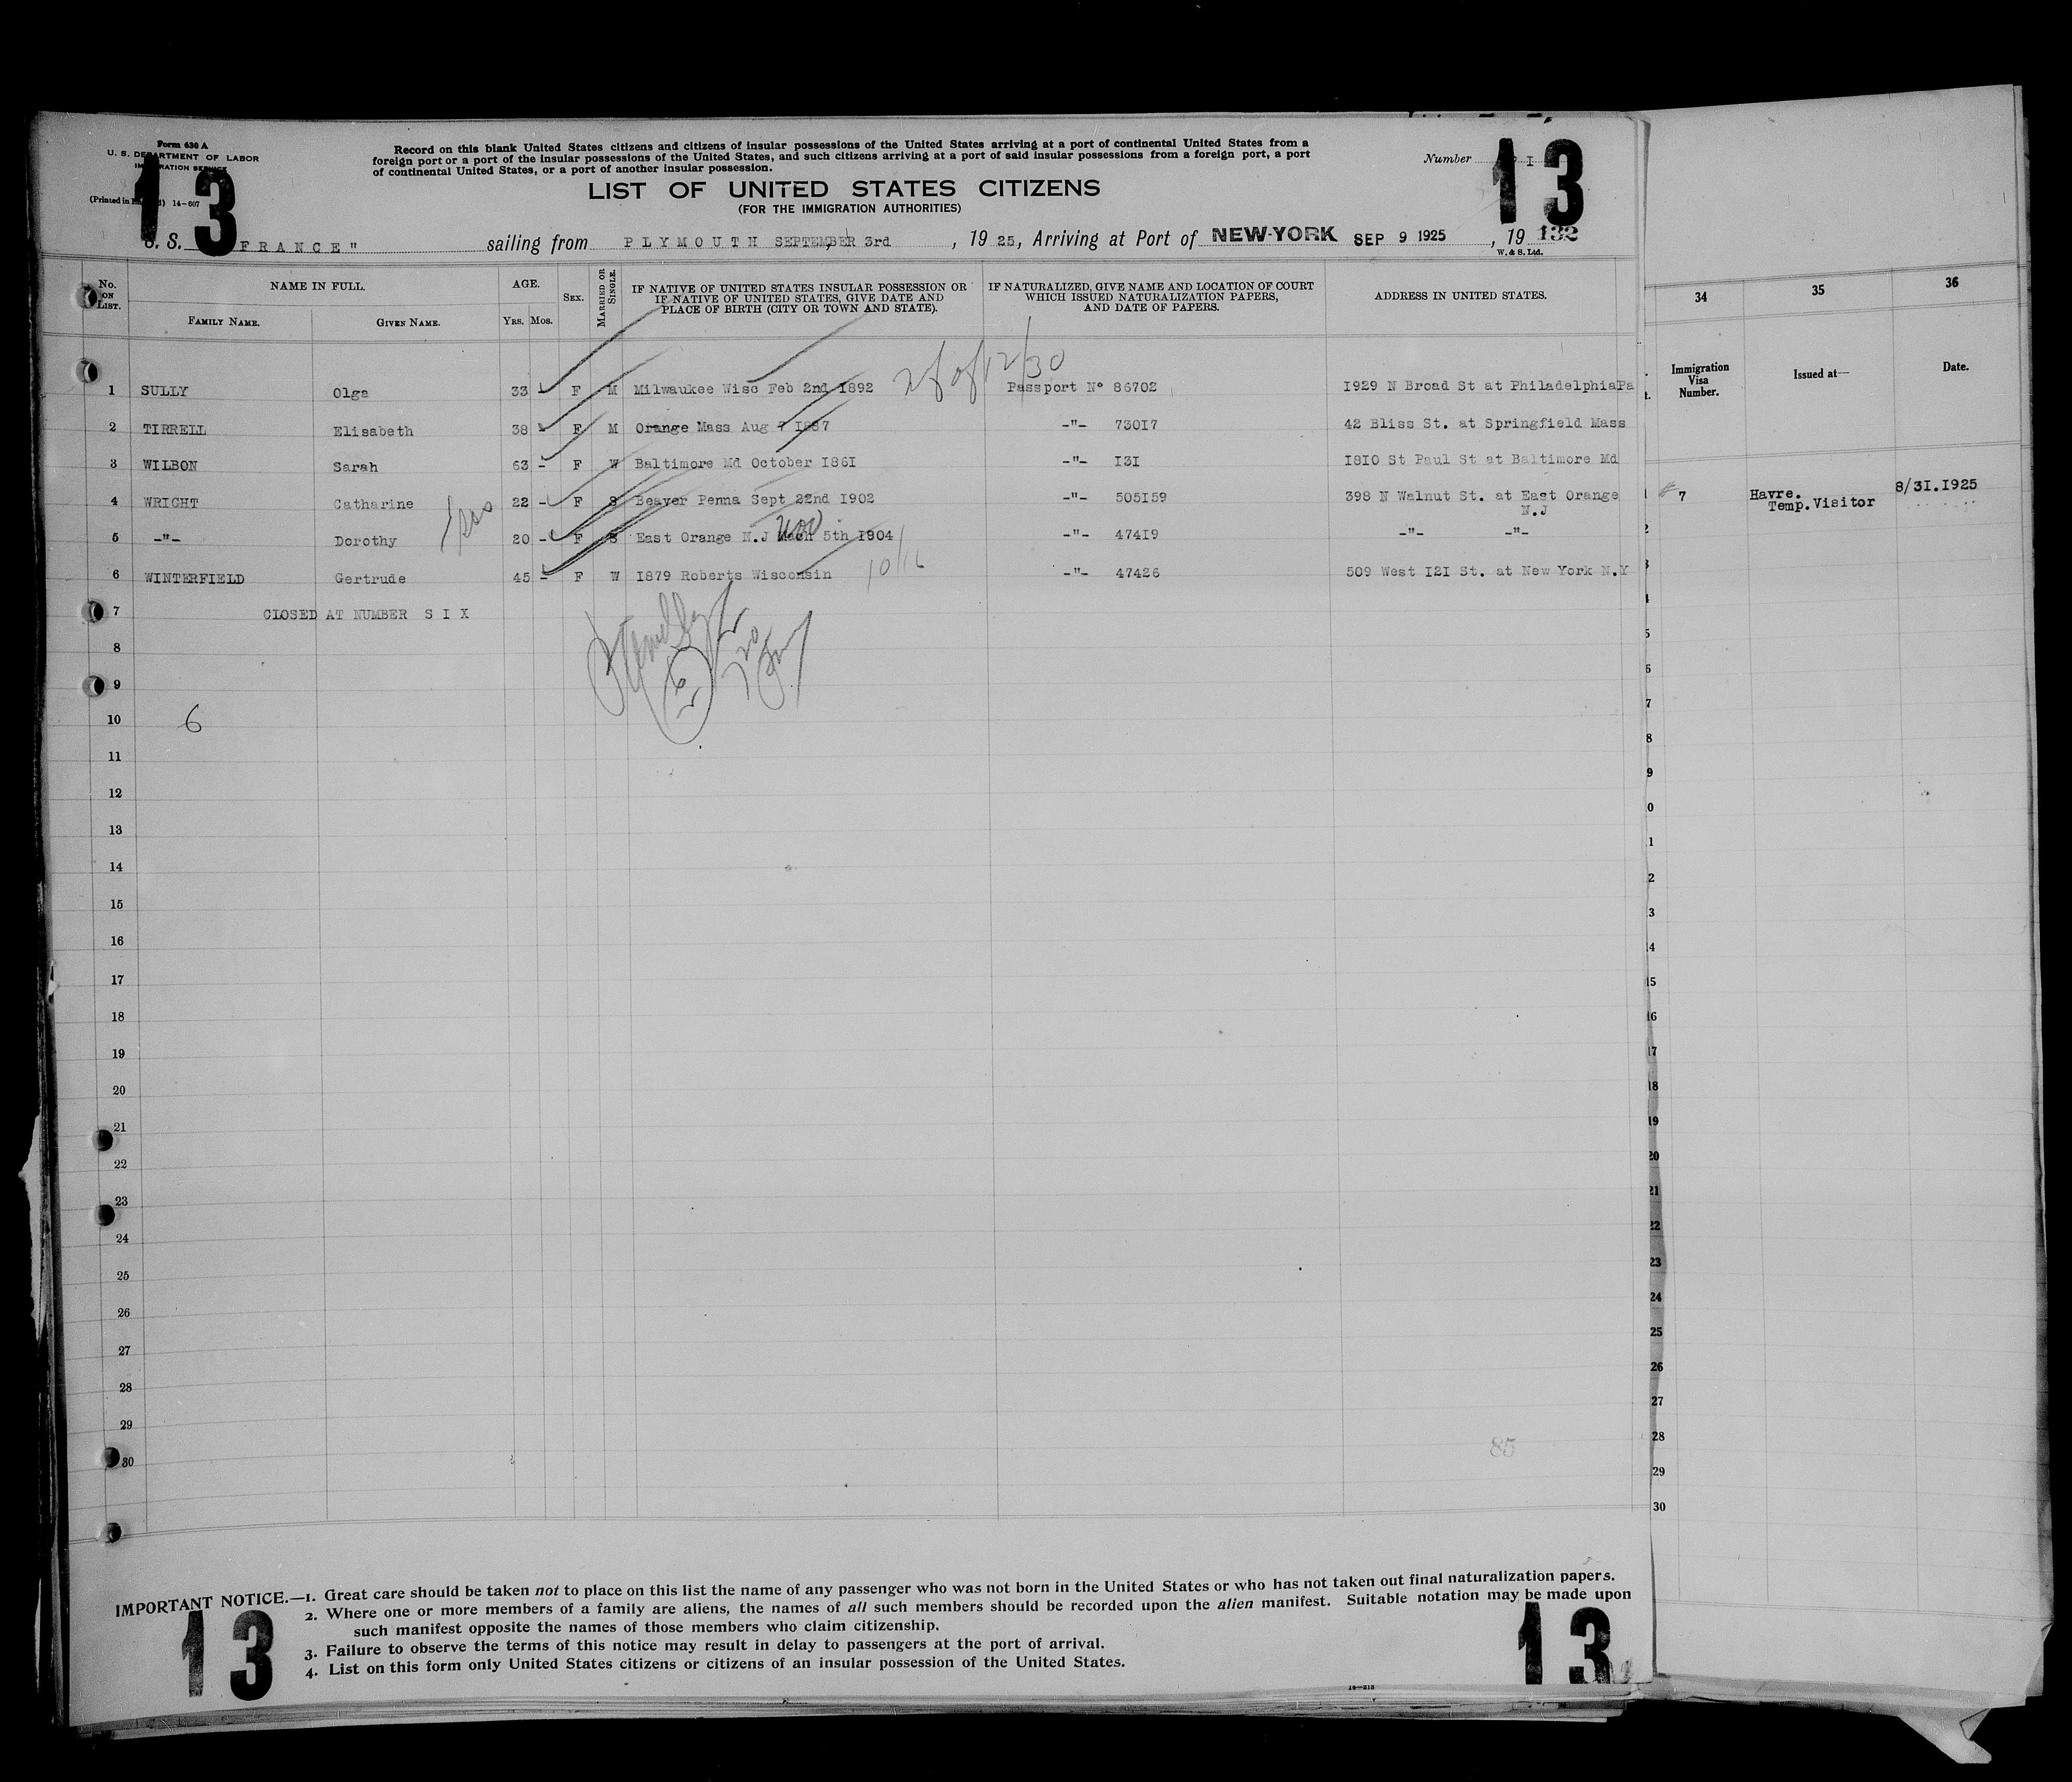 Form 630 A
U. S. DEPARTMENT OF LABOR
IMMIGRATION SERVICE
(Printed in 14-607
13
Record on this blank United States citizens and citizens of insular possessions of the United States arriving at a port of continental United States from a
foreign port or a port of the insular possessions of the United States, and such citizens arriving at a port of said insular possessions from a foreign port, a port
of continental United States, or a port of another insular possession.
Number I
13
LIST OF UNITED STATES CITIZENS
(FOR THE IMMIGRATION AUTHORITIES)
S. S. FRANCE" sailing from PLYMOUTH SEPTEMBER 3rd, 1925, Arriving at Port of NEW-YORK SEP 9 1925, 19 132
W. & S. Ltd.
No. ON LIST. NAME IN FULL. AGE. SEX. MARRIED OR SINGLE. IF NATIVE OF UNITED STATES INSULAR POSSESSION OR IF NATIVE OF UNITED STATES, GIVE DATE AND PLACE OF BIRTH (CITY OR TOWN AND STATE). IF NATURALIZED, GIVE NAME AND LOCATION OF COURT WHICH ISSUED NATURALIZATION PAPERS, AND DATE OF PAPERS. ADDRESS IN UNITED STATES.
FAMILY NAME. GIVEN NAME. YRS. MOS.
34 35 36
Immigration Visa Number. Issued at— Date.
12/30
1 SULLY Olga 33 F M Milwaukee Wisc Feb 2nd 1892 Passport N° 86702 1929 N Broad St at PhiladelphiaPa
2 TIRRELL Elisabeth 38 F M Orange Mass Aug 7 1887 -"- 73017 42 Bliss St. at Springfield Mass
3 WILBON Sarah 63 - F W Baltimore Md October 1861 -"- 131 1810 St Paul St at Baltimore Md
4 WRIGHT Catharine 22 - F S Beaver Penna Sept 22nd 1902 -"- 505159 398 N Walnut St. at East Orange
N.J
5 -"- Dorothy 20 - F S East Orange N.J Nov 5th 1904 -"- 47419 -"- -"-
6 WINTERFIELD Gertrude 45 - F W 1879 Roberts Wisconsin 10/16 -"- 47426 509 West 121 St. at New York N.Y
7 CLOSED AT NUMBER SIX
8
9
10 6
11
12
13
14
15
16
17
18
19
20
21
22
23
24
25
26
27
28
29
30
85
7 Havre. 8/31.1925
Temp. Visitor
1
2
3
4
5
6
7
8
9
10
11
12
13
14
15
16
17
18
19
20
21
22
23
24
25
26
27
28
29
30
IMPORTANT NOTICE.—1. Great care should be taken not to place on this list the name of any passenger who was not born in the United States or who has not taken out final naturalization papers.
2. Where one or more members of a family are aliens, the names of all such members should be recorded upon the alien manifest. Suitable notation may be made upon
such manifest opposite the names of those members who claim citizenship.
3. Failure to observe the terms of this notice may result in delay to passengers at the port of arrival.
4. List on this form only United States citizens or citizens of an insular possession of the United States.
13
13
14—213